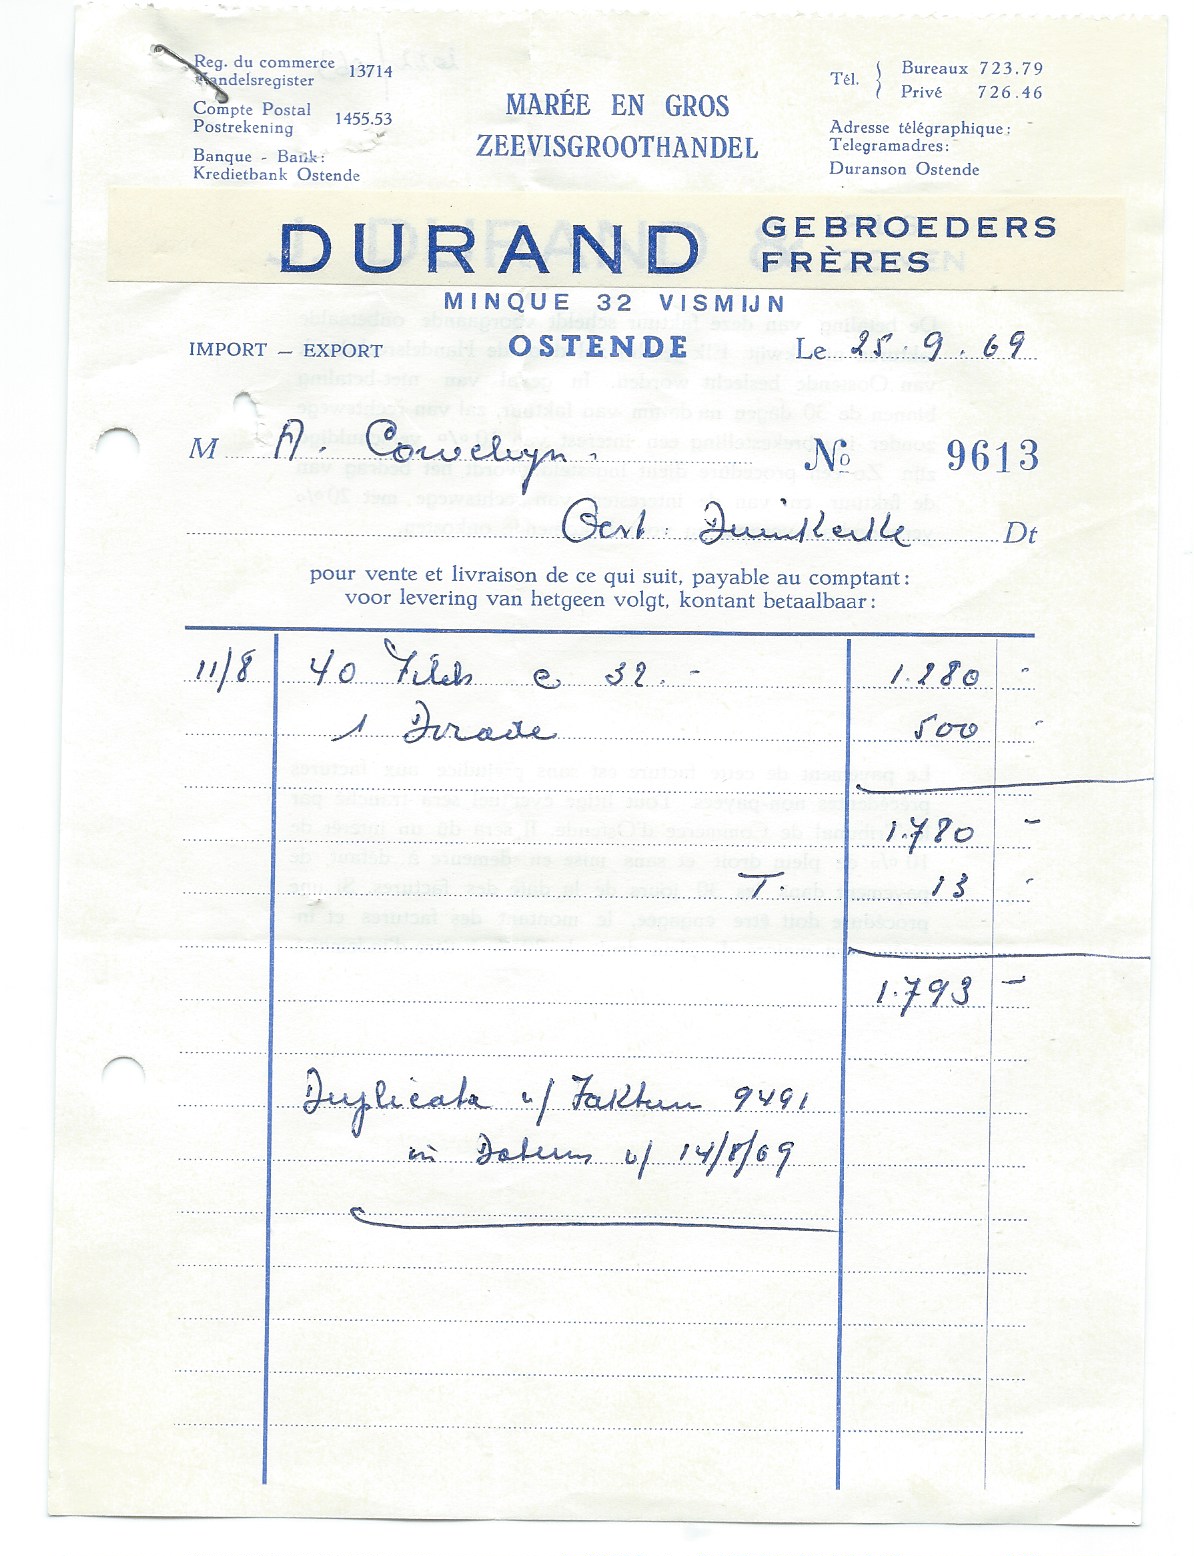 Reg. du commerce
Handelsregister 13714
Compte Postal
Postrekening 1455.53
Banque - Bank:
Kredietbank Ostende
MARÉE EN GROS
ZEEVISGROOTHANDEL
Tél. { Bureaux 723.79
Privé 726.46
Adresse télégraphique:
Telegramadres:
Duranson Ostende
DURAND GEBROEDERS
FRÈRES
MINQUE 32 VISMIJN
IMPORT – EXPORT OSTENDE Le 25.9.69
M A. No 9613
Oost. Duinkerke Dt
pour vente et livraison de ce qui suit, payable au comptant:
voor levering van hetgeen volgt, kontant betaalbaar:
11/8 40 Filets e 32.- 1.280 -
1 Dorade 500 -
1.780 -
T. 13 -
1.793 -
Duplicata v/ Faktuur 9491
in Datum v/ 14/8/69